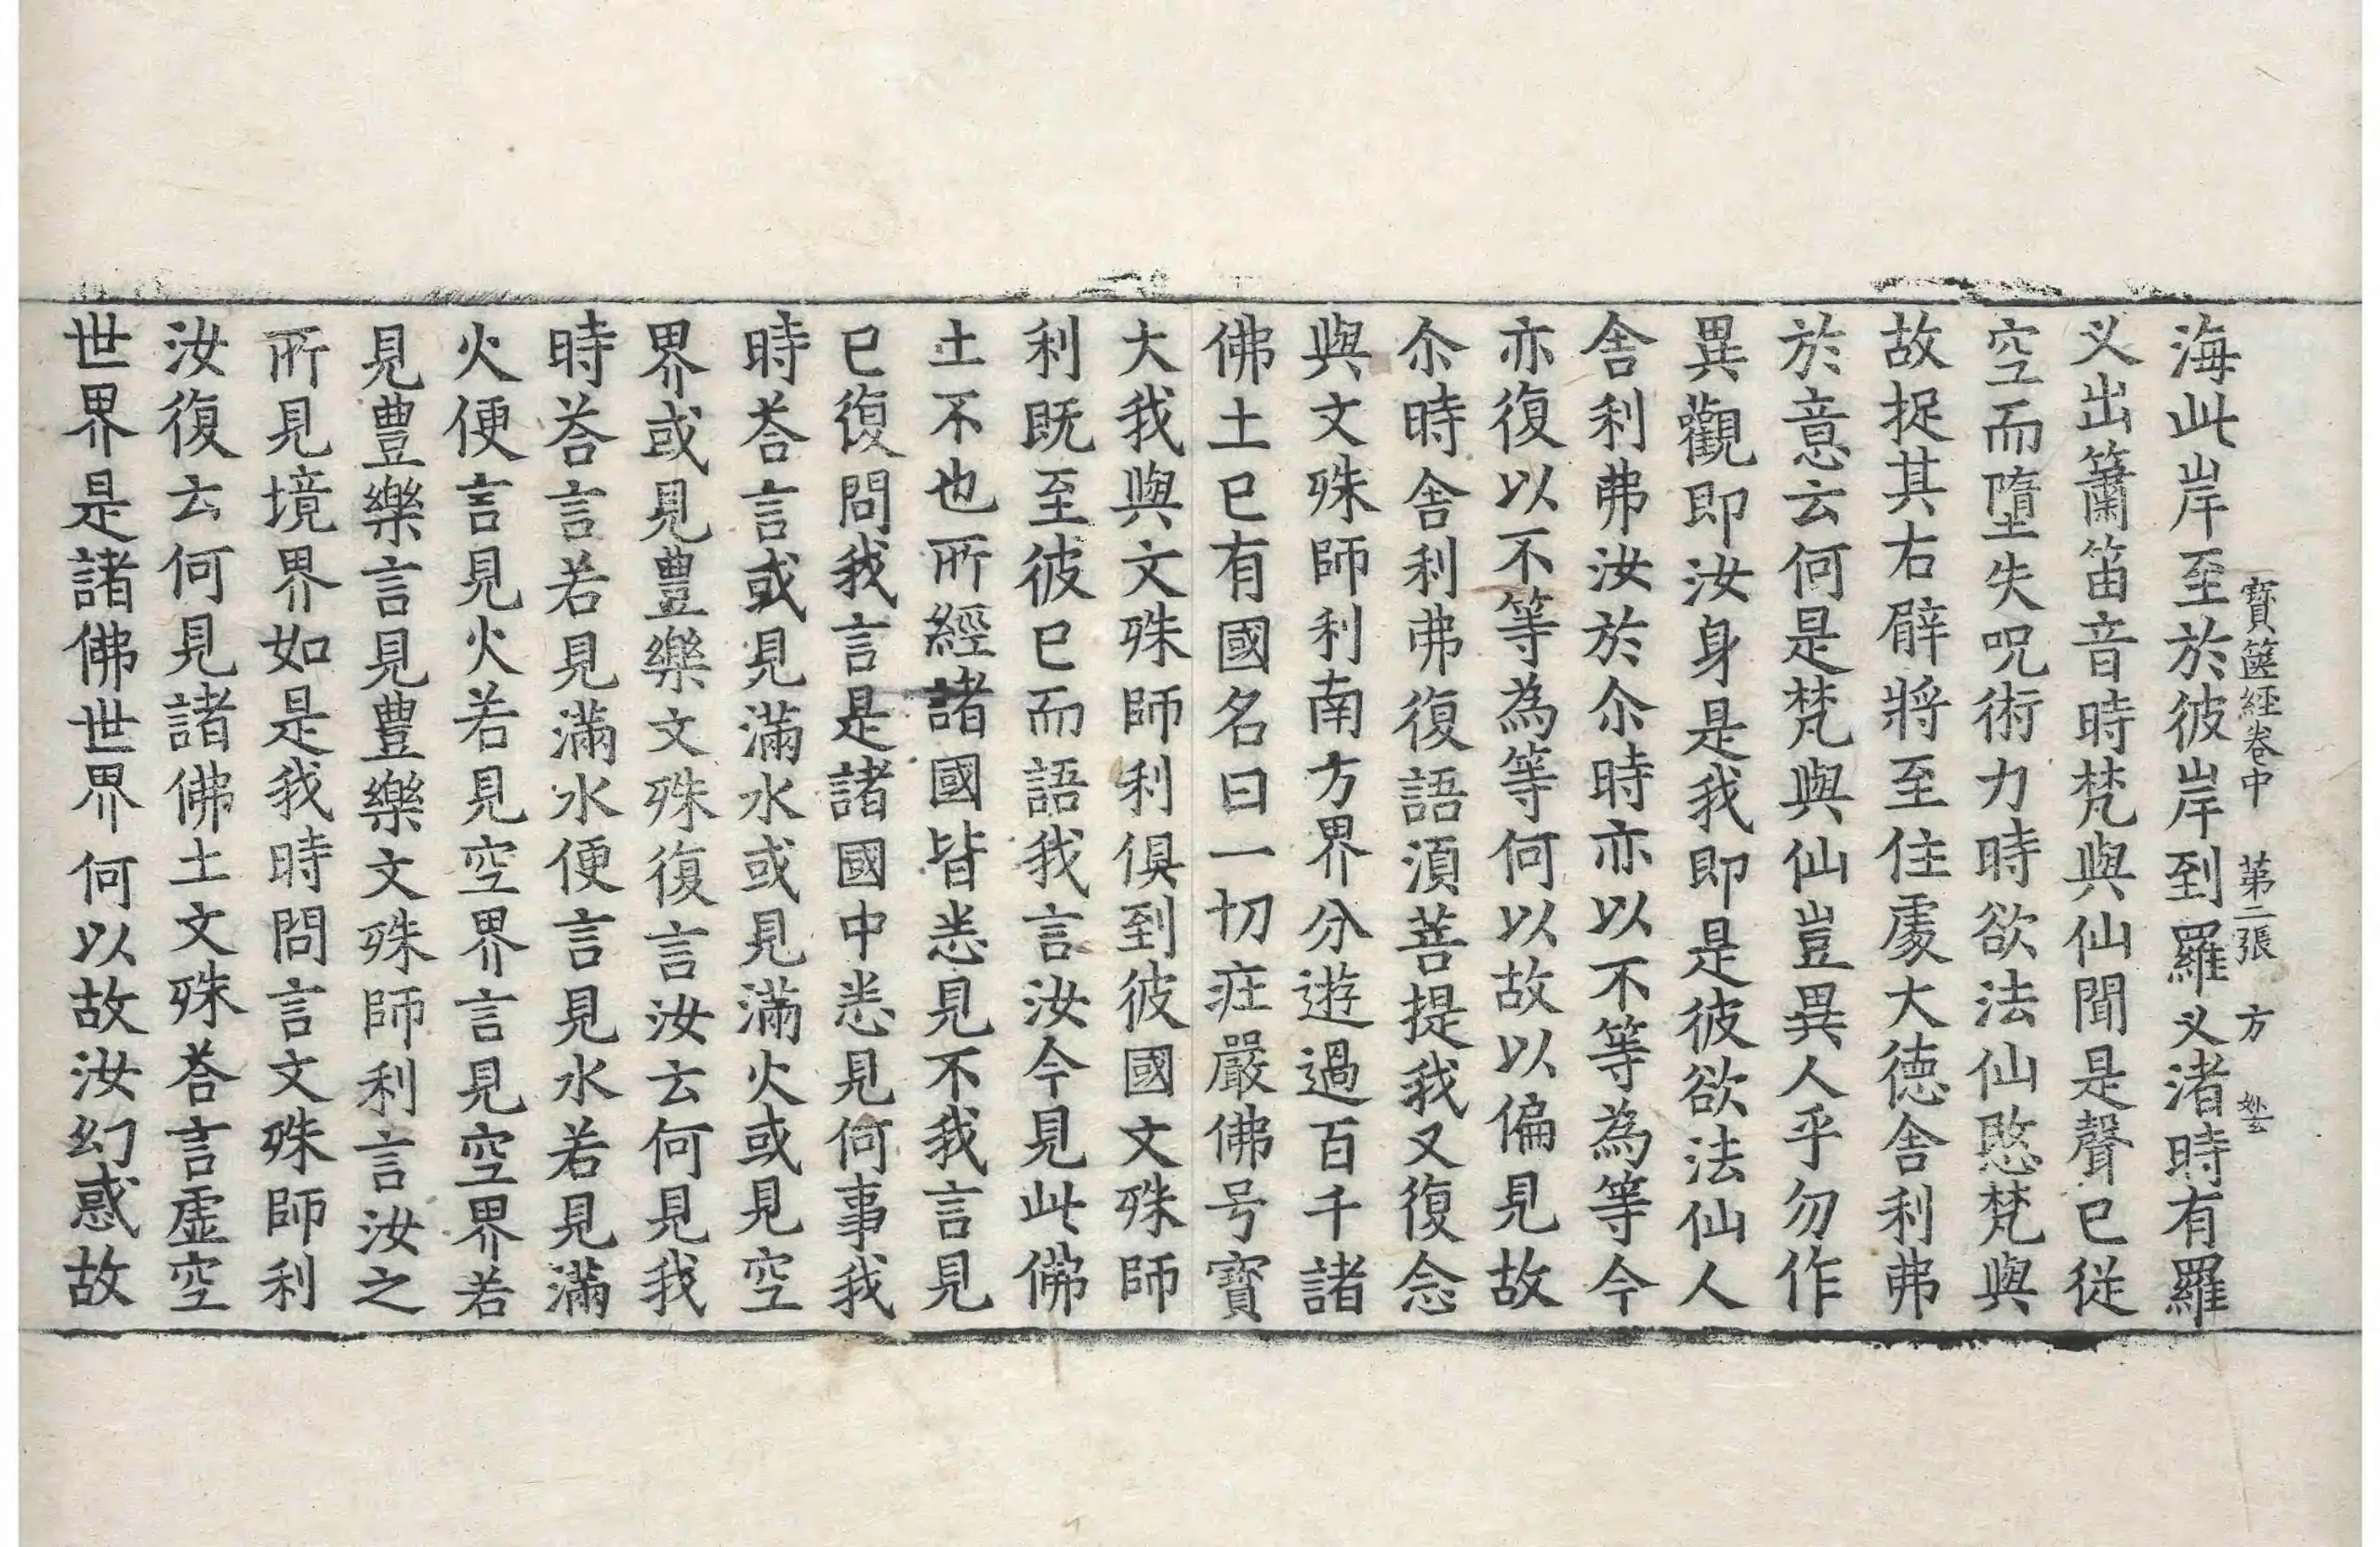 寶篋經卷中　第二張　方
海此岸至於彼岸到羅义渚時有羅
义出簫笛音時梵與仙聞是聲已從
空而墮失呪術力時欲法仙愍梵與
故捉其右臂將至住處大德舍利弗
於意云何是梵與仙豈異人乎勿作
異觀即汝身是我即是彼欲法仙人
舍利弗汝於尒時亦以不等為等今
亦復以不等為等何以故以偏見故
尒時舍利弗復語湏菩提我又復念
與文殊師利南方界分遊過百千諸
佛土已有國名曰一切疘嚴佛号寶
大我與文殊師利俱到彼國文殊師
利既至彼已而語我言汝今見此佛
土不也所經諸國皆悉見不我言見
已復問我言是諸國中悉見何事我
時荅言或見滿水或見滿火或見空
界或見豊樂文殊復言汝云何見我
時荅言若見滿水便言見水若見滿
火便言見火若見空界言見空界若
見豊樂言見豊樂文殊師利言汝之
所見境界如是我時問言文殊師利
汝復云何見諸佛土文殊荅言虛空
世界是諸佛世界何以故汝幻惑故